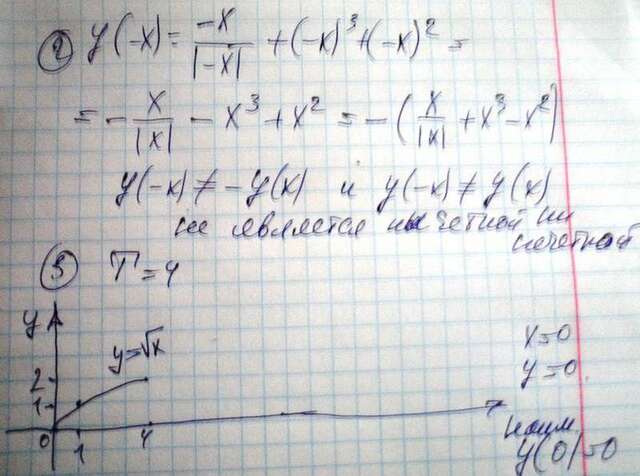 ② y(-x) = -x/|-x| + (-x)³ + (-x)² =
= - x/|x| - x³ + x² = - (x/|x| + x³ - x²)
y(-x) ≠ -y(x) и y(-x) ≠ y(x)
не является ни четной ни
нечетной
③ T = 4
y
y=√x
2
1
0 1 4
x=0
y=0
наим.
y(0)=0